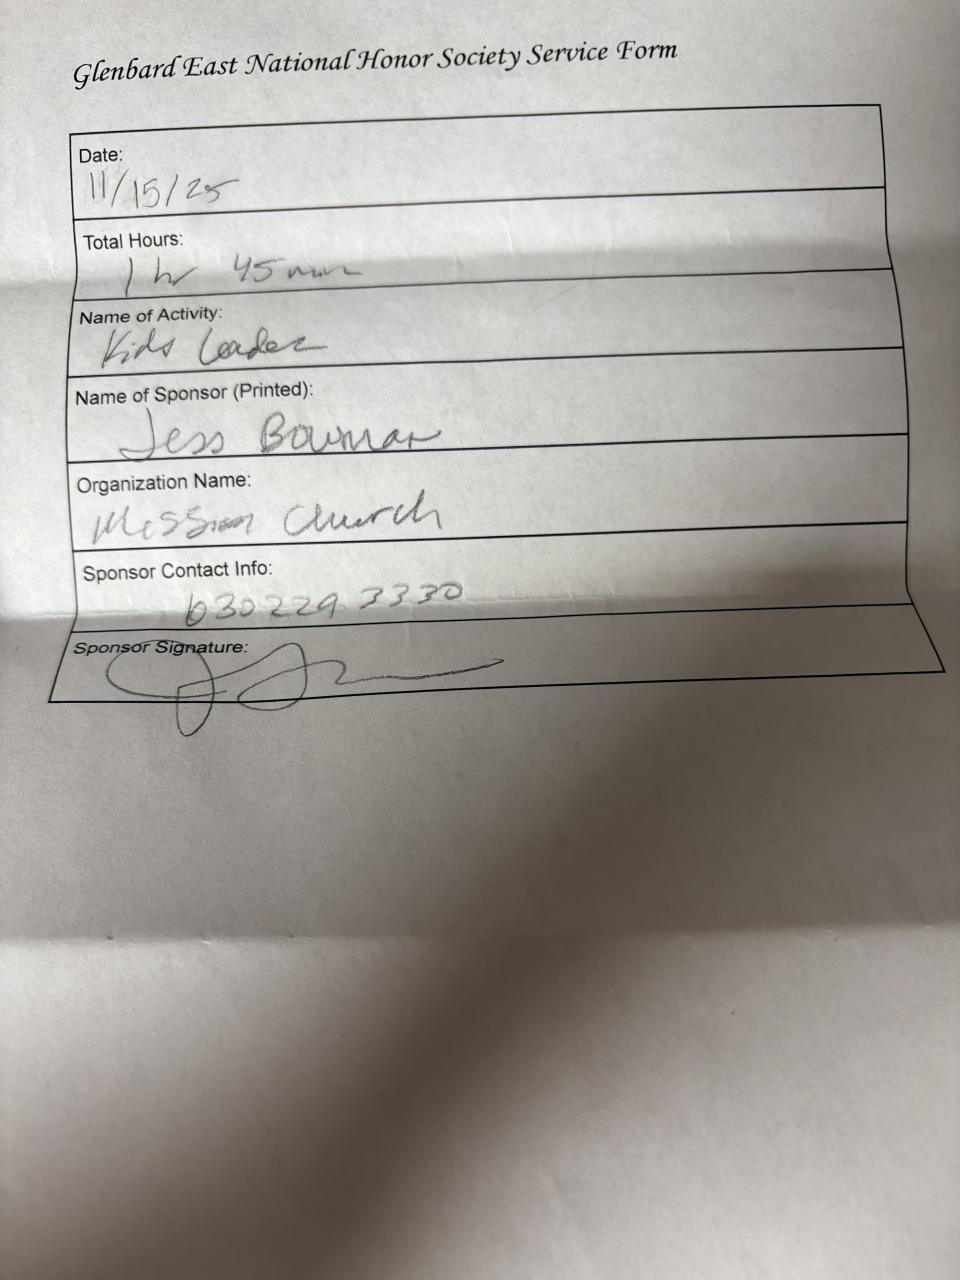 Glenbard East National Honor Society Service Form
Date:
11/15/25
Total Hours:
1 hr 45 min
Name of Activity:
Kids Leader
Name of Sponsor (Printed):
Jess Bowman
Organization Name:
Mission Church
Sponsor Contact Info:
630 229 3330
Sponsor Signature: